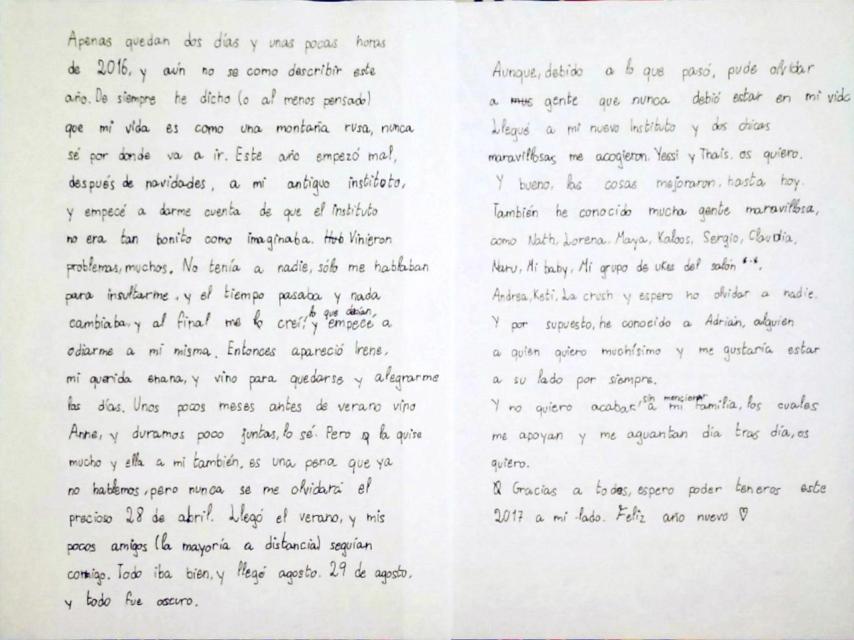 Apenas quedan dos días y unas pocas horas
de 2016, y aún no se como describir este
año. De siempre he dicho (o al menos pensado)
que mi vida es como una montaña rusa, nunca
sé por donde va a ir. Este año empezó mal,
después de navidades, a mi antiguo instituto,
y empecé a darme cuenta de que el instituto
no era tan bonito como imaginaba. Vinieron
problemas, muchos. No tenía a nadie, sólo me hablaban
para insultarme, y el tiempo pasaba y nada
cambiaba, y al final me creí lo que decían, y empecé a
odiarme a mi misma. Entonces apareció Irene,
mi querida enana, y vino para quedarse y alegrarme
los días. Unos pocos meses antes de verano vino
Anne, y duramos poco juntas, lo sé. Pero la quise
mucho y ella a mi también, es una pena que ya
no hablemos, pero nunca se me olvidará el
precioso 28 de abril. Llegó el verano, y mis
pocos amigos (la mayoría a distancia) seguían
conmigo. Todo iba bien, y llegó agosto. 29 de agosto,
y todo fue oscuro.
Aunque, debido a lo que pasó, pude olvidar
a gente que nunca debió estar en mi vida
Llegué a mi nuevo Instituto y dos chicas
maravillosas me acogieron. Yessi y Thais, os quiero.
Y bueno, las cosas mejoraron, hasta hoy.
También he conocido mucha gente maravillosa,
como Nath, Lorena, Maya, Kaloos, Sergio, Claudia,
Naru, Mi baby, Mi grupo de ukes del salón *-*,
Andrea, Keti, La crush y espero no olvidar a nadie.
Y por supuesto, he conocido a Adrián, alguien
a quien quiero muchísimo y me gustaría estar
a su lado por siempre.
Y no quiero acabar sin mencionar a mi familia, los cuales
me apoyan y me aguantan día tras día, os
quiero.
Gracias a todos, espero poder teneros este
2017 a mi lado. Feliz año nuevo ♡